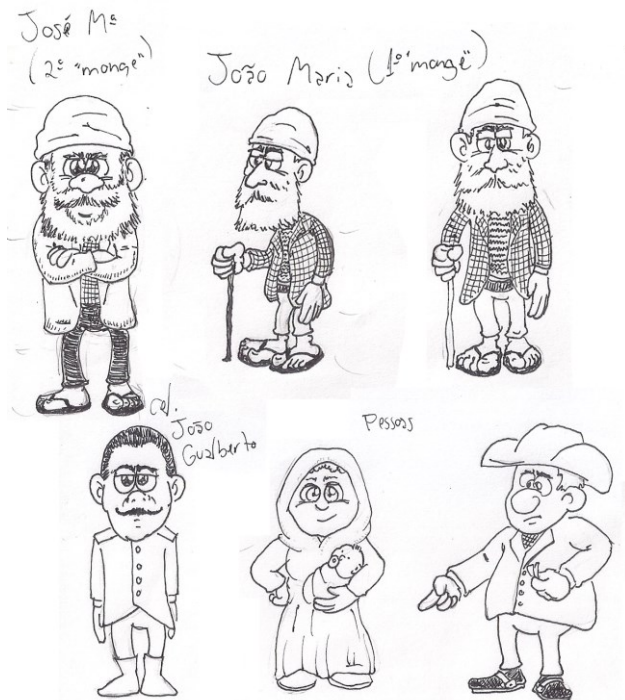 José Mª
(2º "monge")
João Maria (1º "monge")
cel.
João
Gualberto
Pessoas